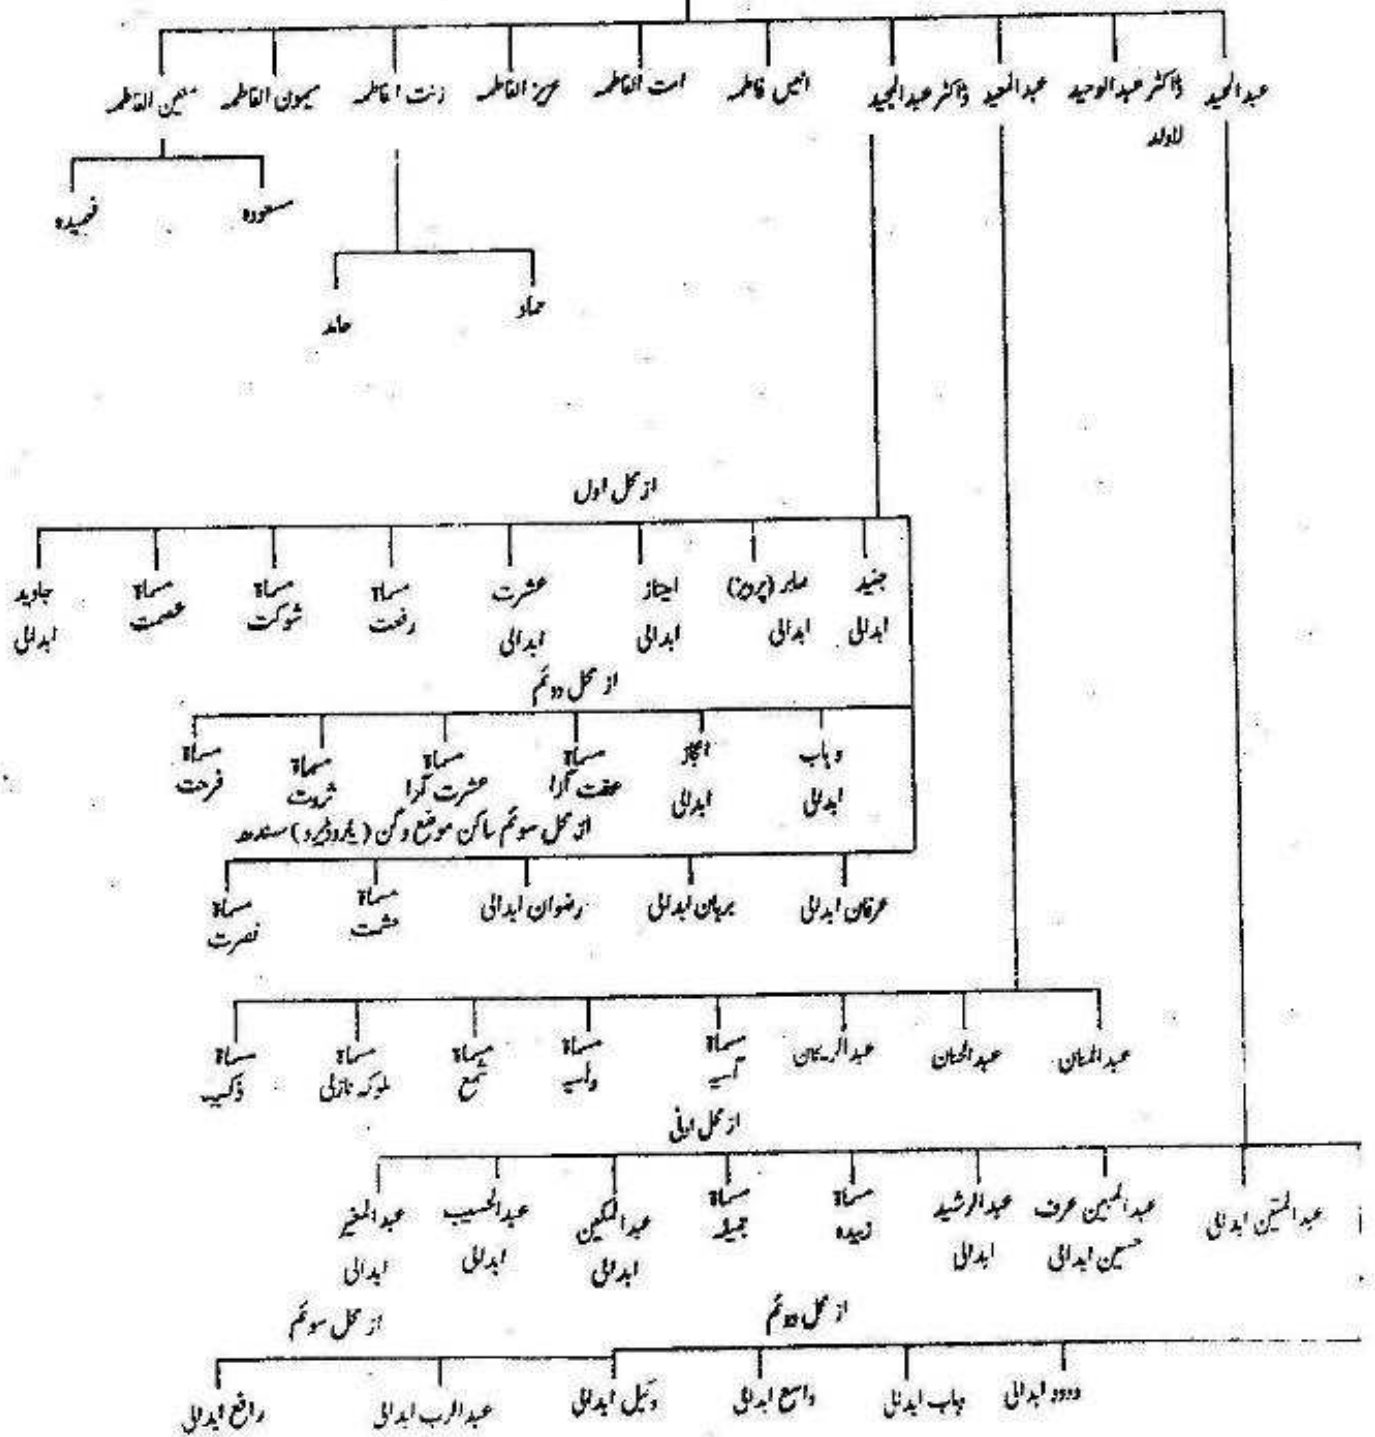 عبدالحمید
ڈاکٹر عبدالوحید
لاولد
عبدالمعید
ڈاکٹر عبدالمجید
انیس فاطمہ
امت الفاطمہ
عزیز الفاطمہ
زنت الفاطمہ
میمون الفاطمہ
معین الفاطمہ
مسعودہ
فہمیدہ
حماد
حامد
از محل اول
جنید
ابدالی
صابر (پرویز)
ابدالی
امیتاز
ابدالی
عشرت
ابدالی
مسماۃ
رفعت
مسماۃ
شوکت
مسماۃ
عصمت
جاوید
ابدالی
از محل دوئم
وہاب
ابدالی
اعجاز
ابدالی
مسماۃ
عفت آرا
مسماۃ
عشرت آرا
مسماۃ
ثروت
مسماۃ
فرحت
از محل سوئم ساکن موضع وگن سندھ
عرفان ابدالی
برہان ابدالی
رضوان ابدالی
مسماۃ
حشمت
مسماۃ
نصرت
عبدالمنان
عبدالحنان
عبدالریحان
مسماۃ
آسیہ
مسماۃ
ولیہ
مسماۃ
شمع
مسماۃ
ملوکہ نازلی
مسماۃ
ذکیہ
از محل اولیٰ
عبدالمتین ابدالی
عبدالمبین عرف
حسین ابدالی
عبدالرشید
ابدالی
مسماۃ
زبیدہ
مسماۃ
جمیلہ
عبدالمکین
ابدالی
عبدالحسیب
ابدالی
ابدالی
از محل دوئم
از محل سوئم
ودود ابدالی
وہاب ابدالی
واسع ابدالی
وکیل ابدالی
عبدالرب ابدالی
رافع ابدالی